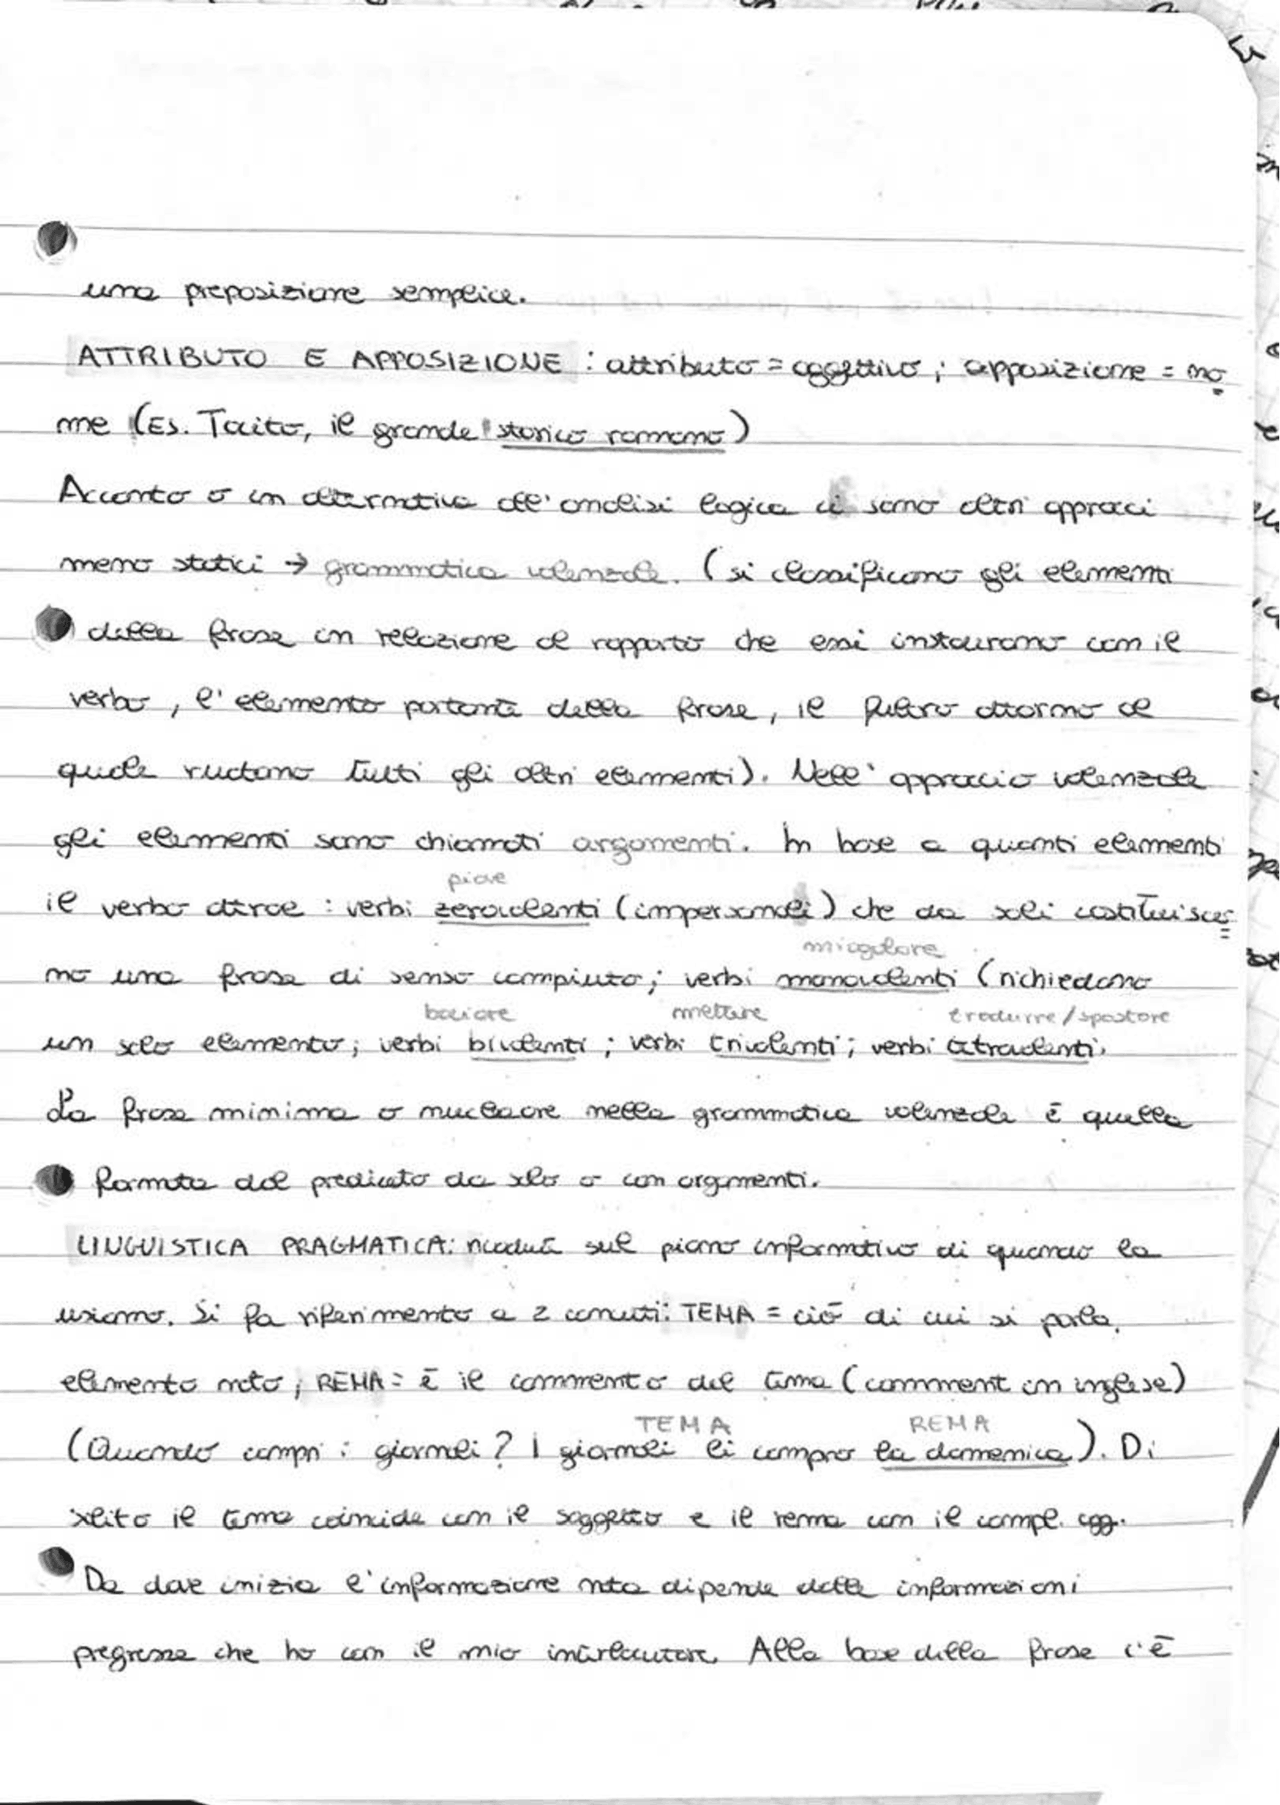 una preposizione semplice.
ATTRIBUTO E APPOSIZIONE : attributo = aggettivo ; apposizione = no
me (Es. Tacito, il grande storico romano)
Accanto o in alternativa all'analisi logica ci sono altri approcci
meno statici → grammatica valenziale. (si classificano gli elementi
della frase in relazione al rapporto che essi instaurano con il
verbo, l'elemento portante della frase, il fulcro attorno al
quale ruotano tutti gli altri elementi). Nell'approccio valenziale
gli elementi sono chiamati argomenti. In base a quanti elementi
piove
il verbo attrae : verbi zerovalenti (impersonali) che da soli costituisco
miagolare
no una frase di senso compiuto; verbi monovalenti (richiedono
baciare mettere tradurre/spostare
un solo elemento; verbi bivalenti ; verbi trivalenti ; verbi tetravalenti.
La frase minima o nucleare nella grammatica valenziale è quella
formata dal predicato da solo o con argomenti.
LINGUISTICA PRAGMATICA: ricadute sul piano informativo di quando la
usiamo. Si fa riferimento a 2 concetti: TEMA = ciò di cui si parla,
elemento noto ; REMA = è il commento del tema (comment in inglese)
TEMA REMA
(Quando compri i giornali? I giornali li compro la domenica). Di
solito il tema coincide con il soggetto e il rema con il compl. ogg.
Da dove inizia l'informazione nota dipende dalle informazioni
pregresse che ho con il mio interlocutore. Alla base della frase c'è